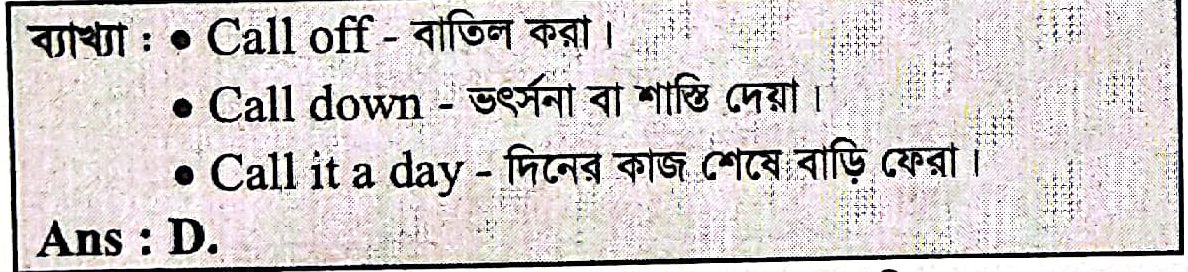 ব্যাখ্যা : • Call off - বাতিল করা।
• Call down - ভর্ৎসনা বা শাস্তি দেয়া।
• Call it a day - দিনের কাজ শেষে বাড়ি ফেরা।
Ans : D.